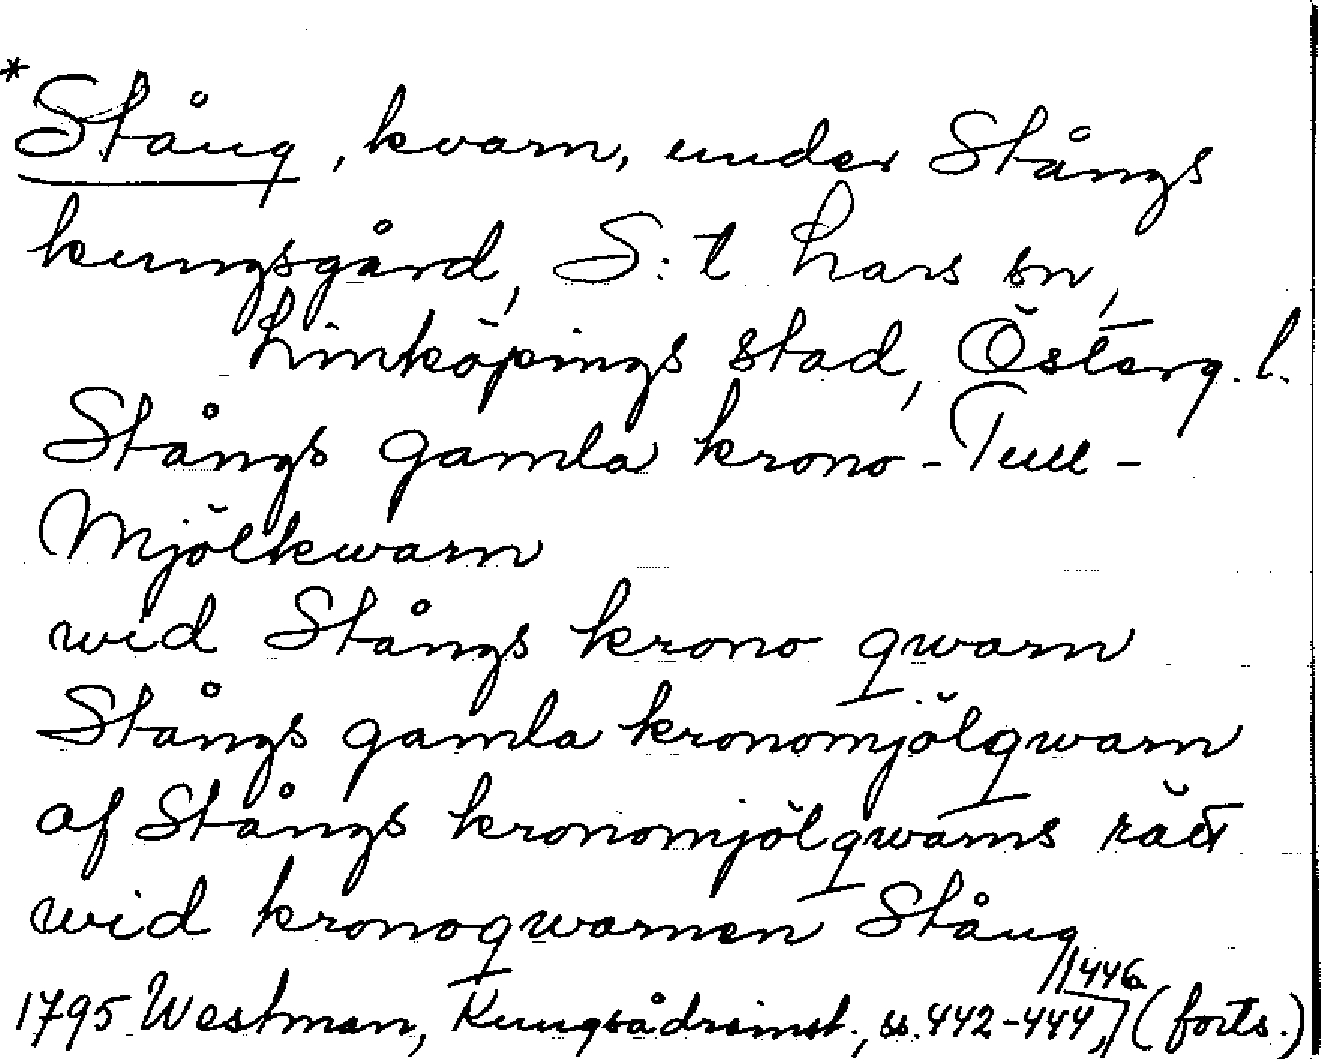 *Stång, kvarn, under Stångs
kungsgård, S:t Lars sn,
Linköpings stad, Österg. l.
Stångs gamla krono-Tull-
Mjölkwarn
wid Stångs krono qwarn
Stångs gamla kronomjölqwarn
af Stångs kronomjölqwarns rätt
wid kronoqwarnen Stång
1795 Westman, Kungsådreinst., ss. 442-444, 446 (forts.)